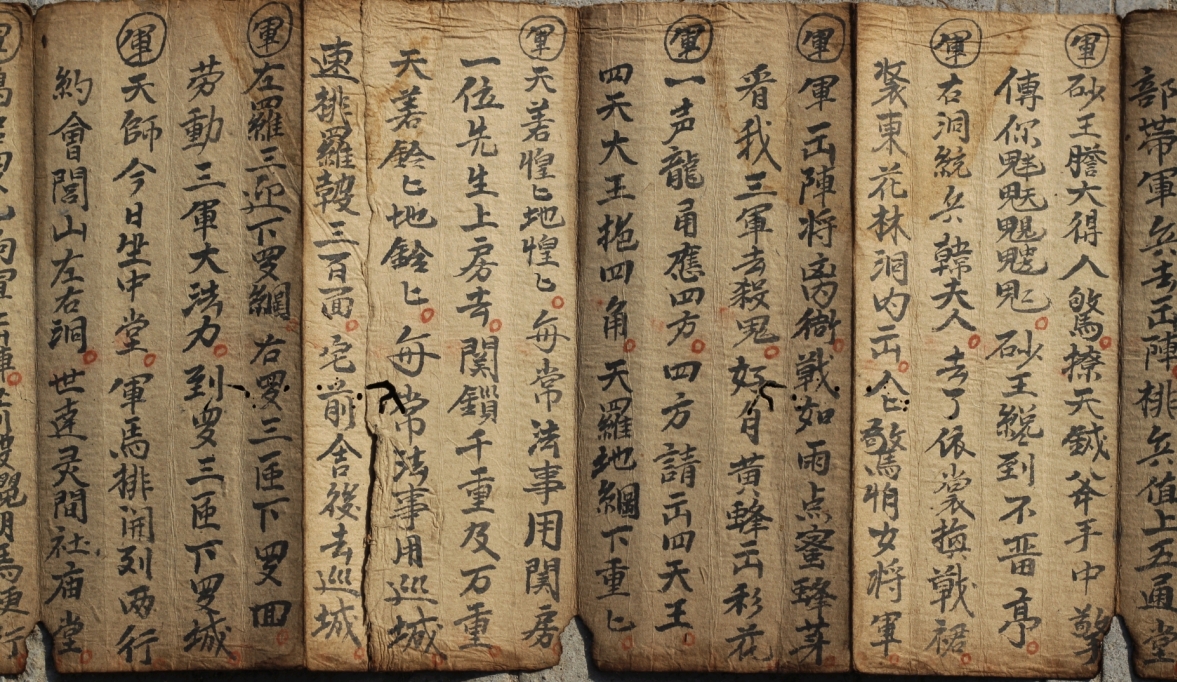 部帶軍兵去出陣排兵值上五通堂
軍砂王膽大得人驚撩天鉞斧手中擎
傳你砂王統到不畱亭
軍右洞統兵韓夫人去了依裳換戰裙
裝東花林洞内出驚怕女将軍
軍軍出陣将离衙戰如雨点蜜蜂芽
看我三軍去殺鬼好自黄蜂出彩花
軍一声龍角應四方四方請出四天王
四天大王拖四角天羅地網下重匕
軍天若惶匕地惶匕每常法事用関房
一位先生上房去関鎖千重及万重
天若鈴匕地鈴匕每常法事用巡城
速排羅鼓三百面宅前舍後去巡城
軍左羅三迎下罗網右罗三匝下罗回
劳動三軍大法力到罗三匝下罗城
軍天師今日坐中堂軍馬排開列两行
約會閭山左右洞世逹灵間社庙堂